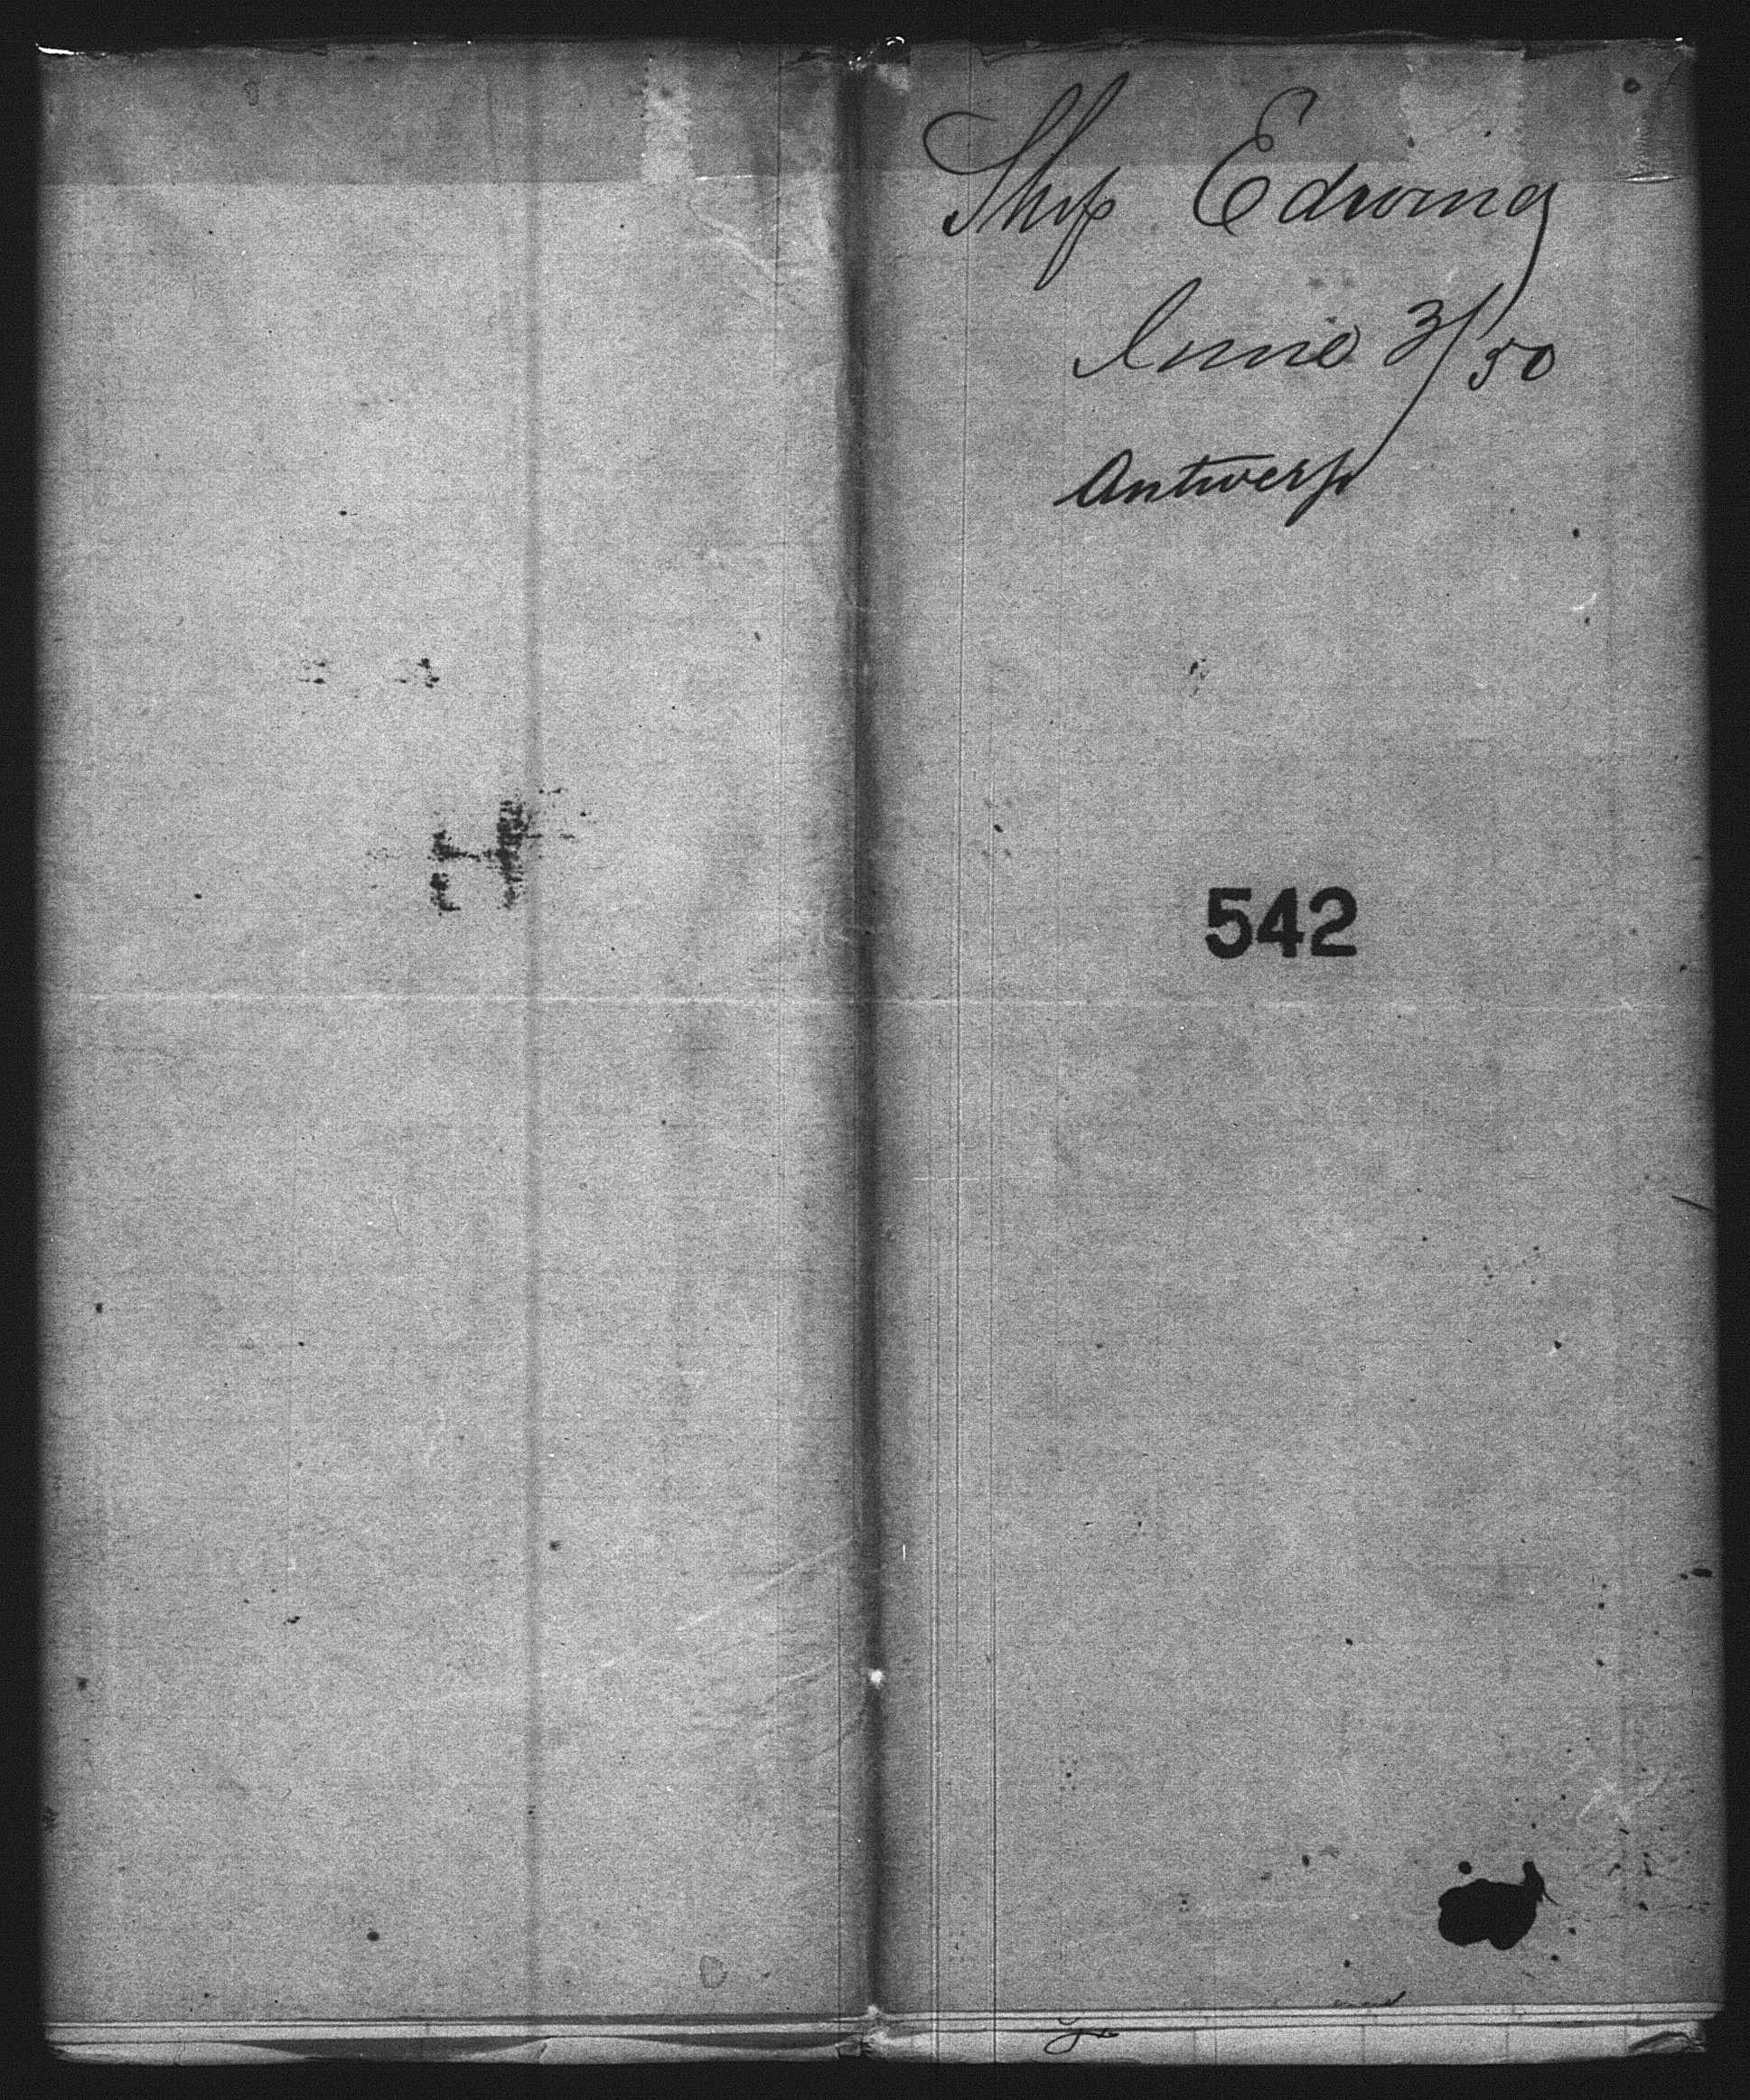 Ship Edwina
June 3/50
Antwerp
542
H